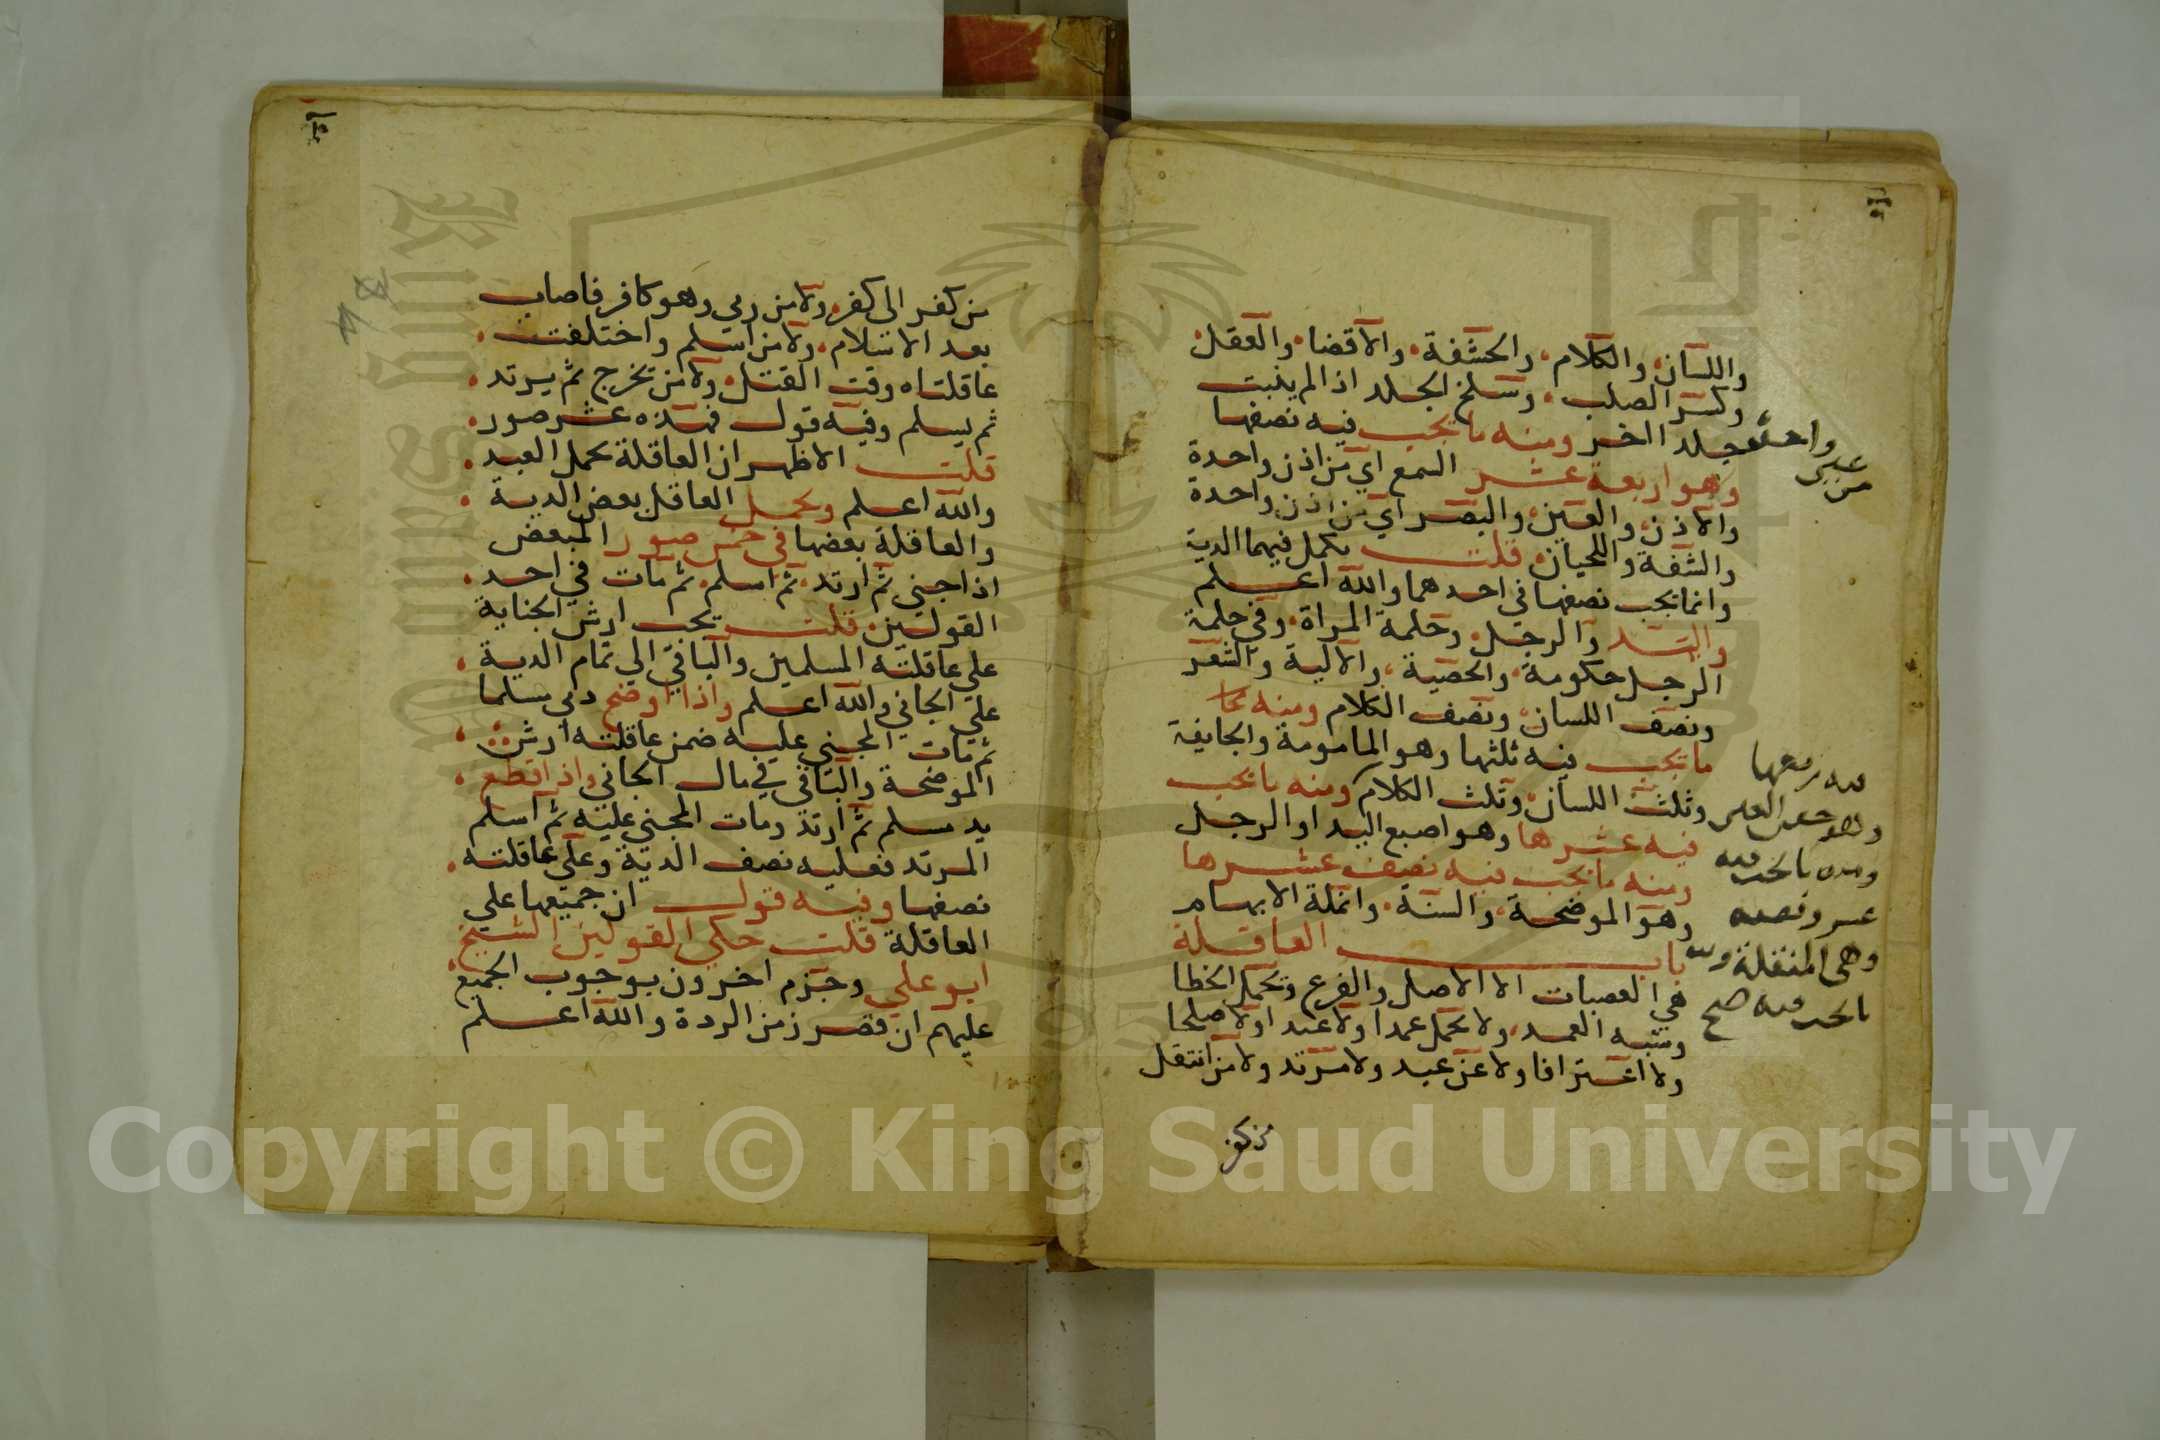 واللسان والكلام والحشفة والاقضا والعقل
وكسر الصلب وسلخ الجلد اذا لم ينبت
وجلد اخر ومنه ما يجب فيه نصفها
وهو اربعة عشر السمع اي من اذن واحدة
والاذن والعين والبصر اي من اذن واحدة
والشفة واللحيان قلت يكمل فيهما الدية
وانما يجب نصفها في احدهما والله اعلم
واليد والرجل وحلمة المراة وفي حلمة
الرجل حكومة والخصية والالية والشفر
ونصف اللسان ونصف الكلام ومنه
ما يجب فيه ثلثها وهو المامومة والجايفة
وثلث اللسان وثلث الكلام ومنه ما يجب
فيه عشرها وهو اصبع اليد او الرجل
ومنه ما يجب فيه نصف عشرها
وهو الموضحة والسنة وانملة الابهام
باب العاقلة
هي العصبات الا الاصل والفرع وتحمل الخطا
وشبه العمد ولا تحمل عمدا ولا عبدا ولا صلحا
ولا اعترافا ولا عن عبد ولا مرتد ولا من انتقل
واحدة
فيه ربعها
وهو جفن العين
ومنه ما يجب فيه
عشر ونصفه
وهي المنقلة
ما يجب فيه صح
من كفر
من كفر الى كفر ولا من رمى وهو كافر فاصاب
بعد الاسلام ولا من اسلم واختلفت
عاقلتاه وقت القتل ولا من تخرج ثم يرتد
ثم يسلم وفيه قول فهذه عشر صور
قلت الاظهر ان العاقلة تحمل العبد
والله اعلم ويحمل العاقل بعض الدية
والعاقلة بعضها في خمس صور المبعض
اذا جنى ثم ارتد ثم اسلم ثم مات في احد
القولين قلت يجب ارش الجناية
على عاقلته المسلمين والباقي الى تمام الدية
على الجاني والله اعلم واذا اوضح ذمي مسلما
ثم مات المجني عليه ضمن عاقلته ارش
الموضحة والباقي في مال الجاني واذا قطع
يد مسلم ثم ارتد ومات المجني عليه ثم اسلم
المرتد فعليه نصف الدية وعلى عاقلته
نصفها وفيه قول ان جميعها على
العاقلة قلت حكى القولين الشيخ
ابو علي وجزم اخرون بوجوب الجميع
عليهم ان قصر زمن الردة والله اعلم
Copyright © King Saud University